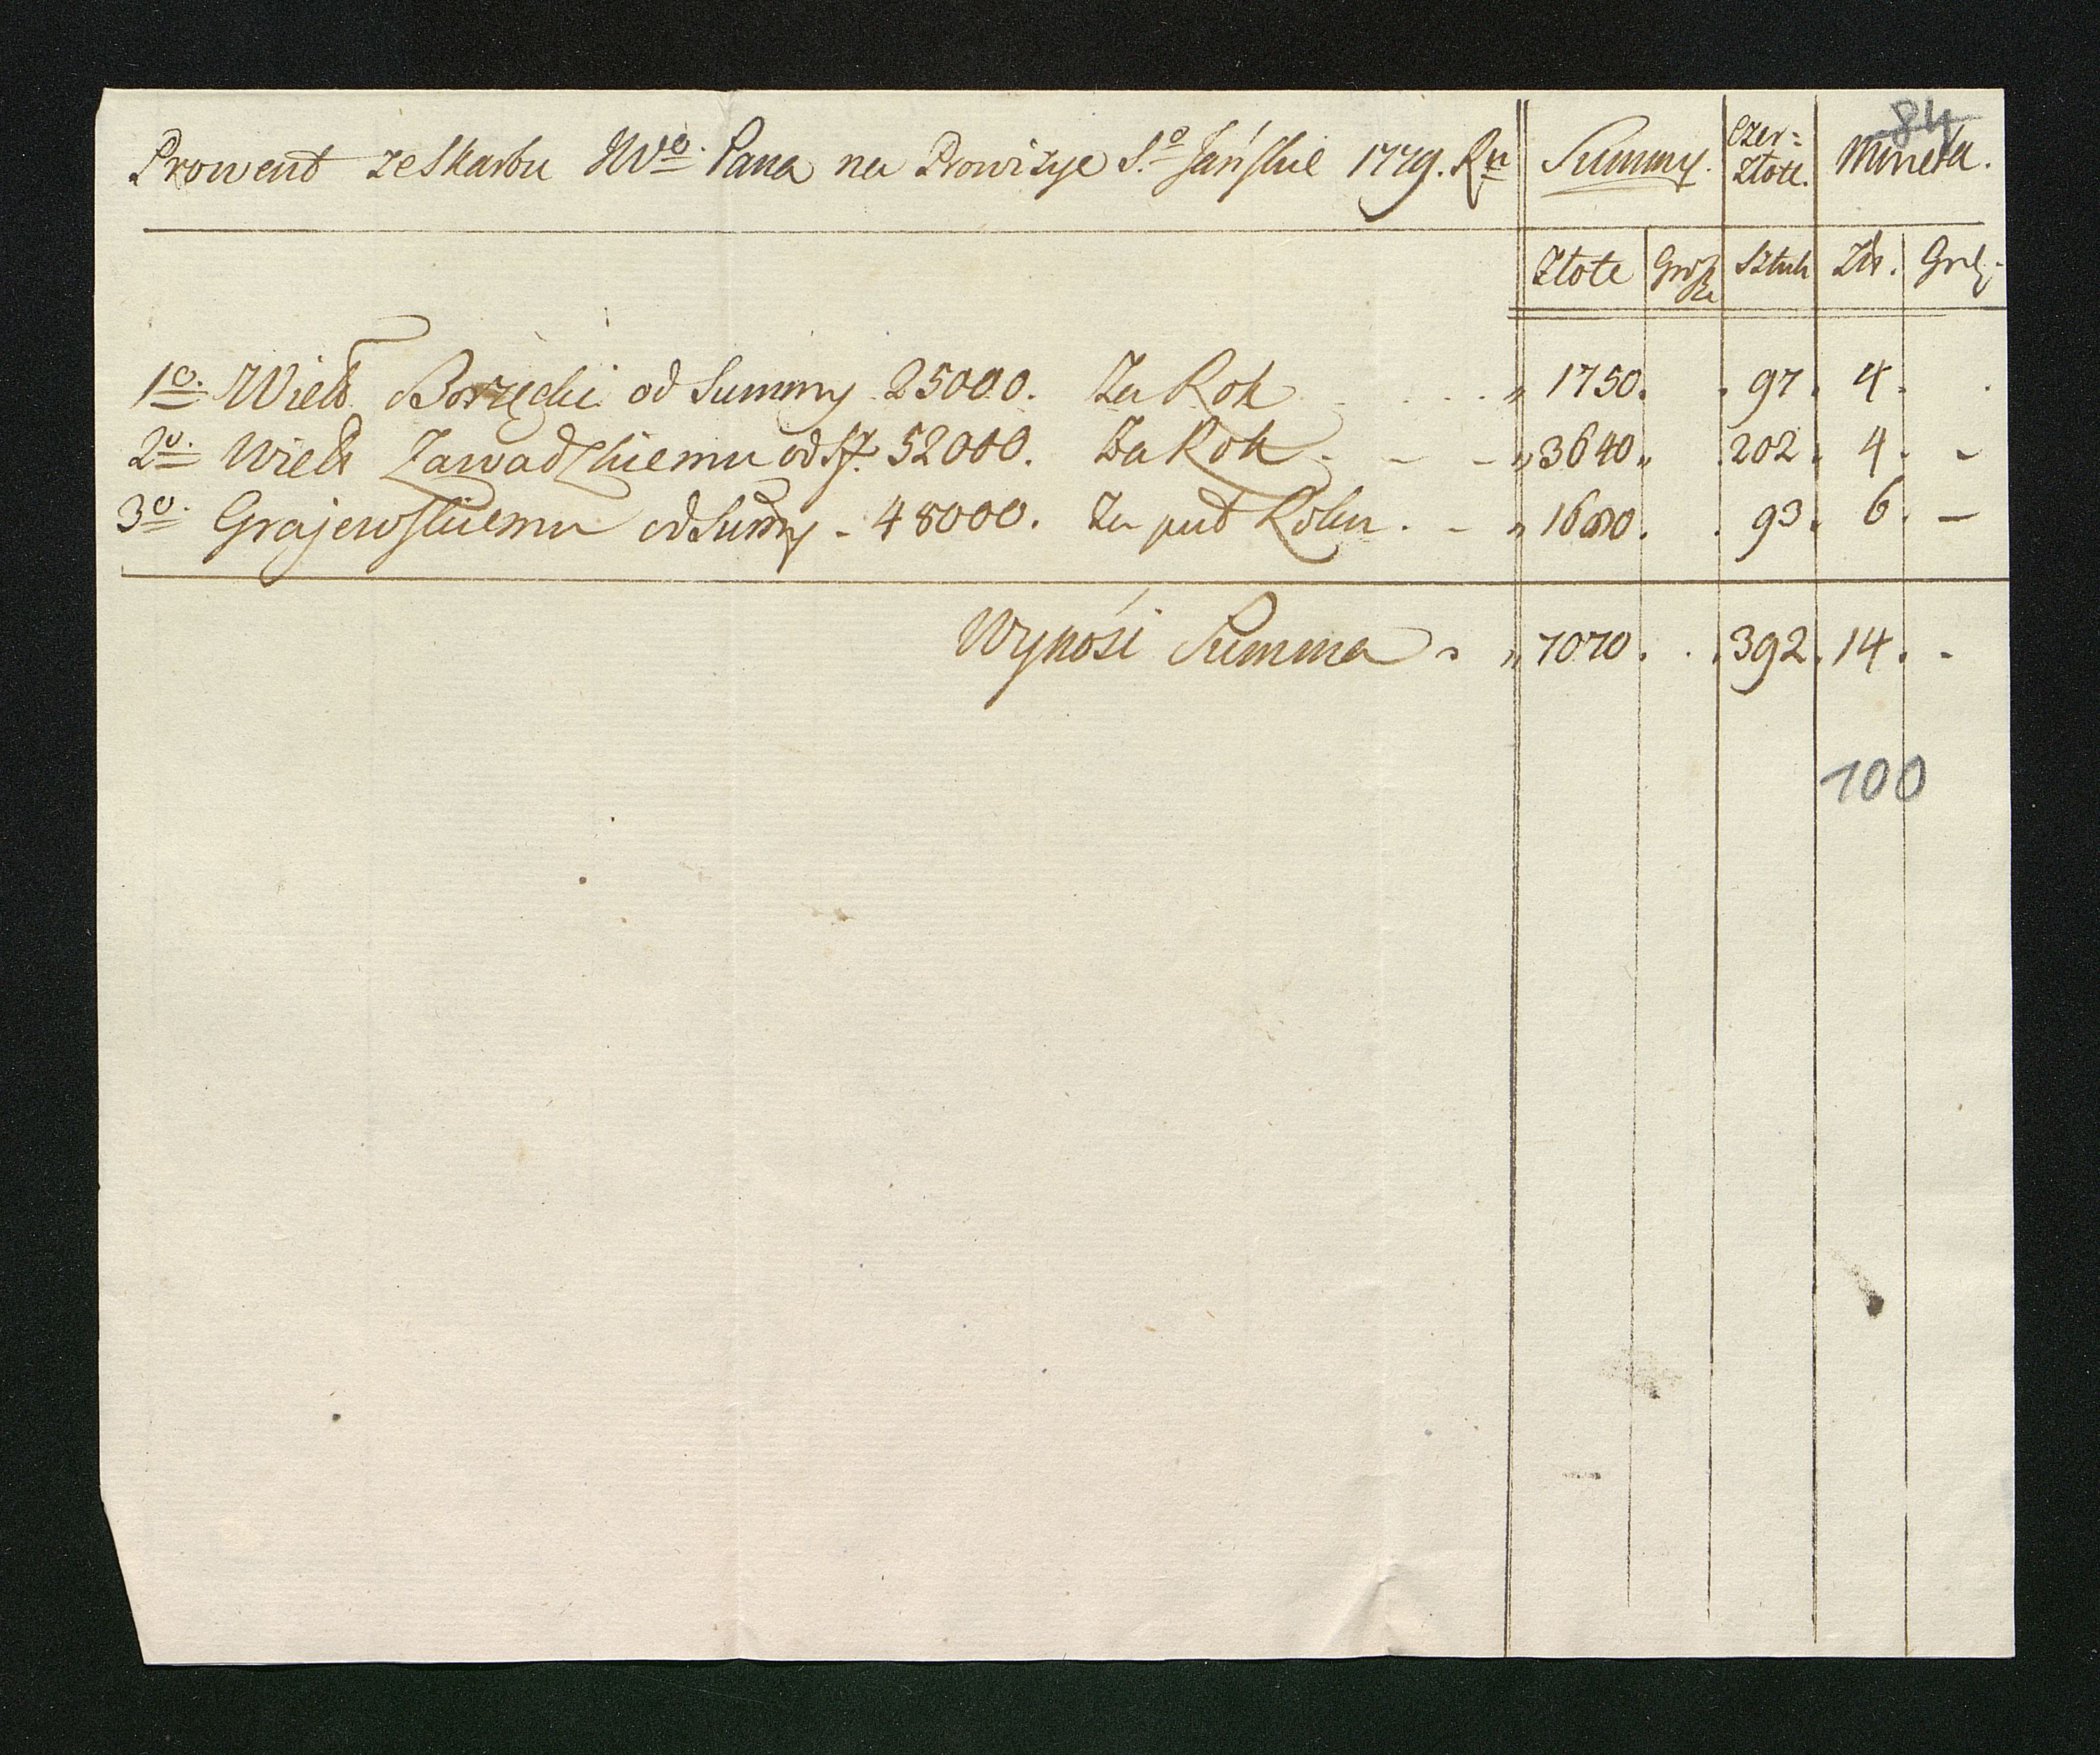 84
Prowent ze Skarbu JWo. Pana na Prowizye S.o Jańskie 1779. Ru Summy. Czer= Złote. Moneta.
Złote Grosze Sztuk Złt. Gr.
1o. Wielo Borzęcki od Summy 25000. Za Rok 1750. 97. 4.
2o. Wielo Zawadzkiemu od S. 52000. Za Rok. - - 3640. 202. 4. -
3o. Grajewskiemu od Sum̃y - 48000. Za puł Roku. - 1680. 93. 6. -
Wynosi Summa 7070. 392. 14. -
100